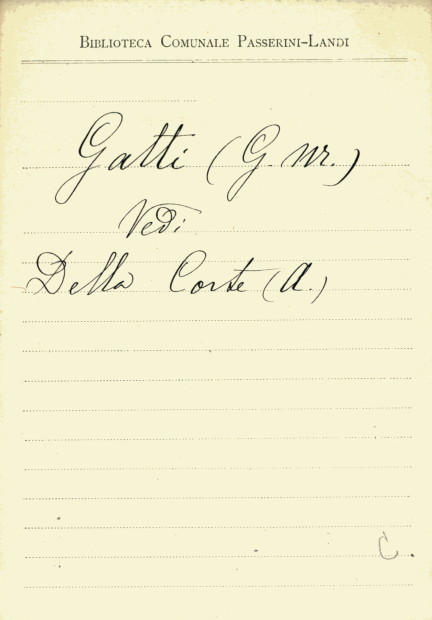 BIBLIOTECA COMUNALE PASSERINI-LANDI
Gatti (G. M.)
Vedi
Della Corte (A.)
C.